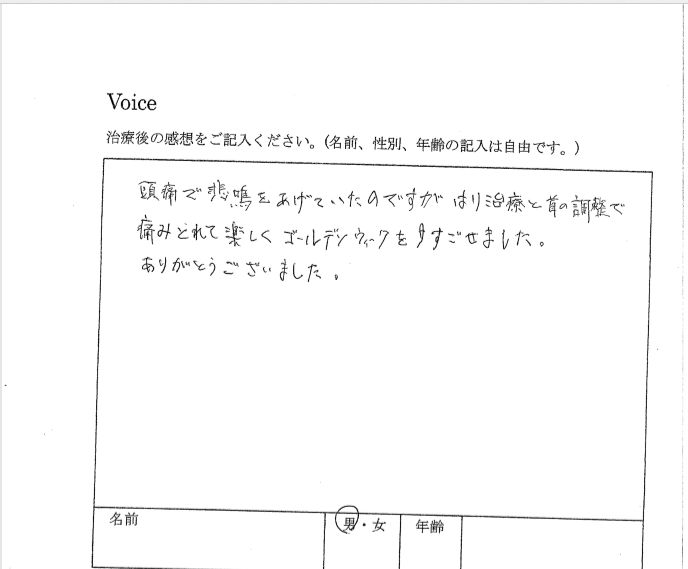 Voice
治療後の感想をご記入ください。(名前、性別、年齢の記入は自由です。)
頭痛で悲鳴をあげていたのですが はり治療と首の調整で
痛みとれて楽しくゴールデンウィークをすごせました。
ありがとうございました。
名前 男・女 年齢